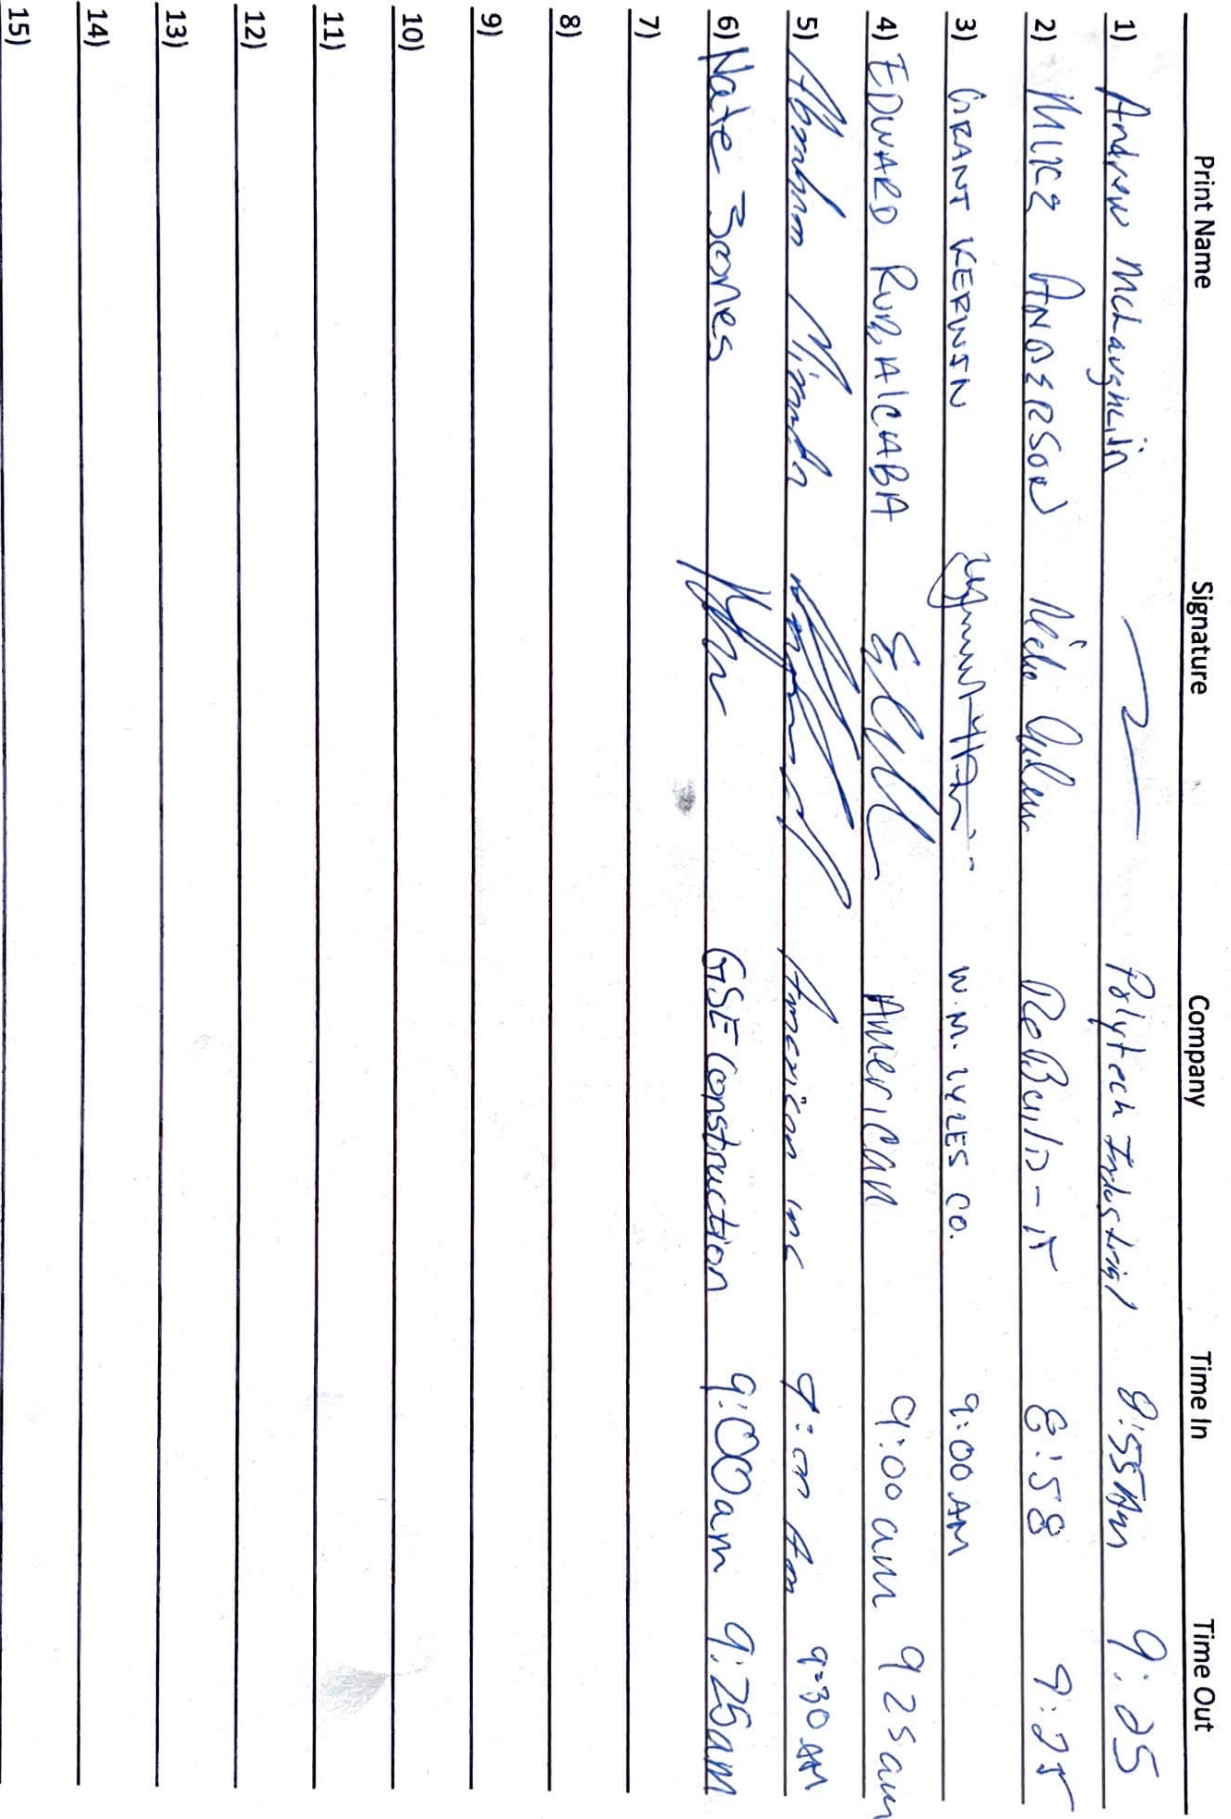 Print Name Signature Company Time In Time Out
1) Andrew McLaughlin Polytech Industrial 8:55 Am 9:25
2) MIKE ANDERSON ReBuilD-iT 8:58 9:25
3) GRANT KERWIN W.M. LYLES CO. 9:00 AM
4) EDWARD RUBALCABA American 9:00 am 9 25 am
5) Abraham American inc 9:30 AM
6) Nate Jones GSE Construction 9:00am 9:25am
7)
8)
9)
10)
11)
12)
13)
14)
15)